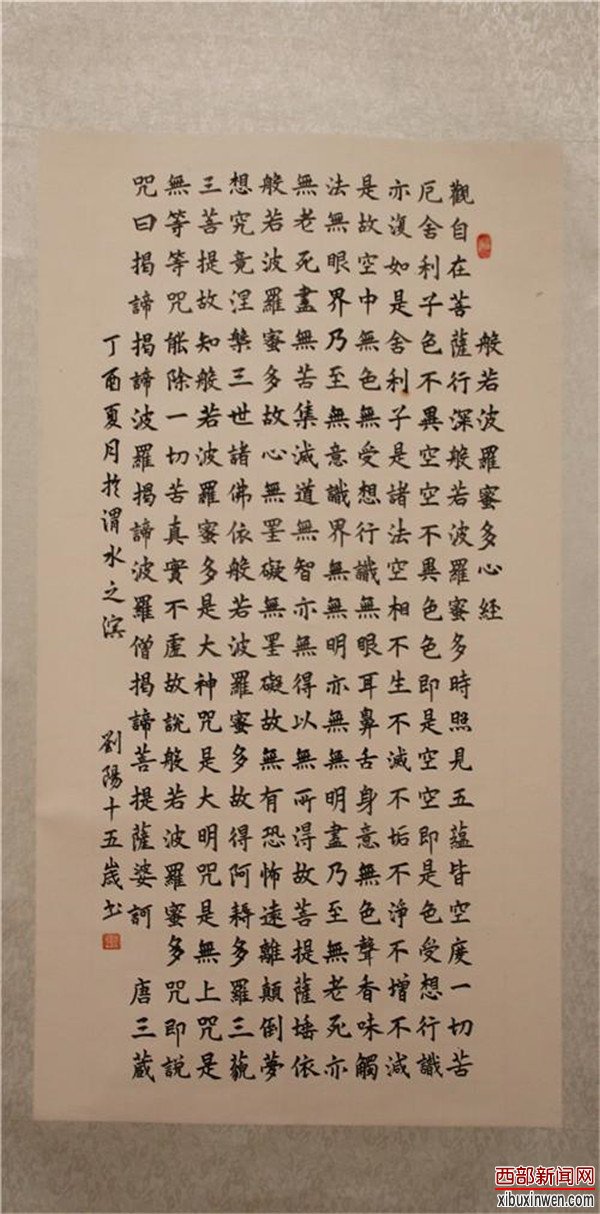 般若波羅蜜多心経
觀自在菩薩行深般若波羅蜜多時照見五蘊皆空度一切苦
厄舍利子色不異空空不異色色即是空空即是色受想行識
亦復如是舍利子是諸法空相不生不滅不垢不淨不增不減
是故空中無色無受想行識無眼耳鼻舌身意無色聲香味觸
法無眼界乃至無意識界無無明亦無無明盡乃至無老死亦
無老死盡無苦集滅道無智亦無得以無所得故菩提薩埵依
般若波羅蜜多故心無罣礙無罣礙故無有恐怖遠離顛倒夢
想究竟涅槃三世諸佛依般若波羅蜜多故得阿耨多羅三藐
三菩提故知般若波羅蜜多是大神咒是大明咒是無上咒是
無等等咒能除一切苦真實不虛故說般若波羅蜜多咒即說
咒曰揭諦揭諦波羅揭諦波羅僧揭諦菩提薩婆訶 唐三藏
丁酉夏月於渭水之濱 劉陽十五歲书
西部新闻网
xibuxinwen.com